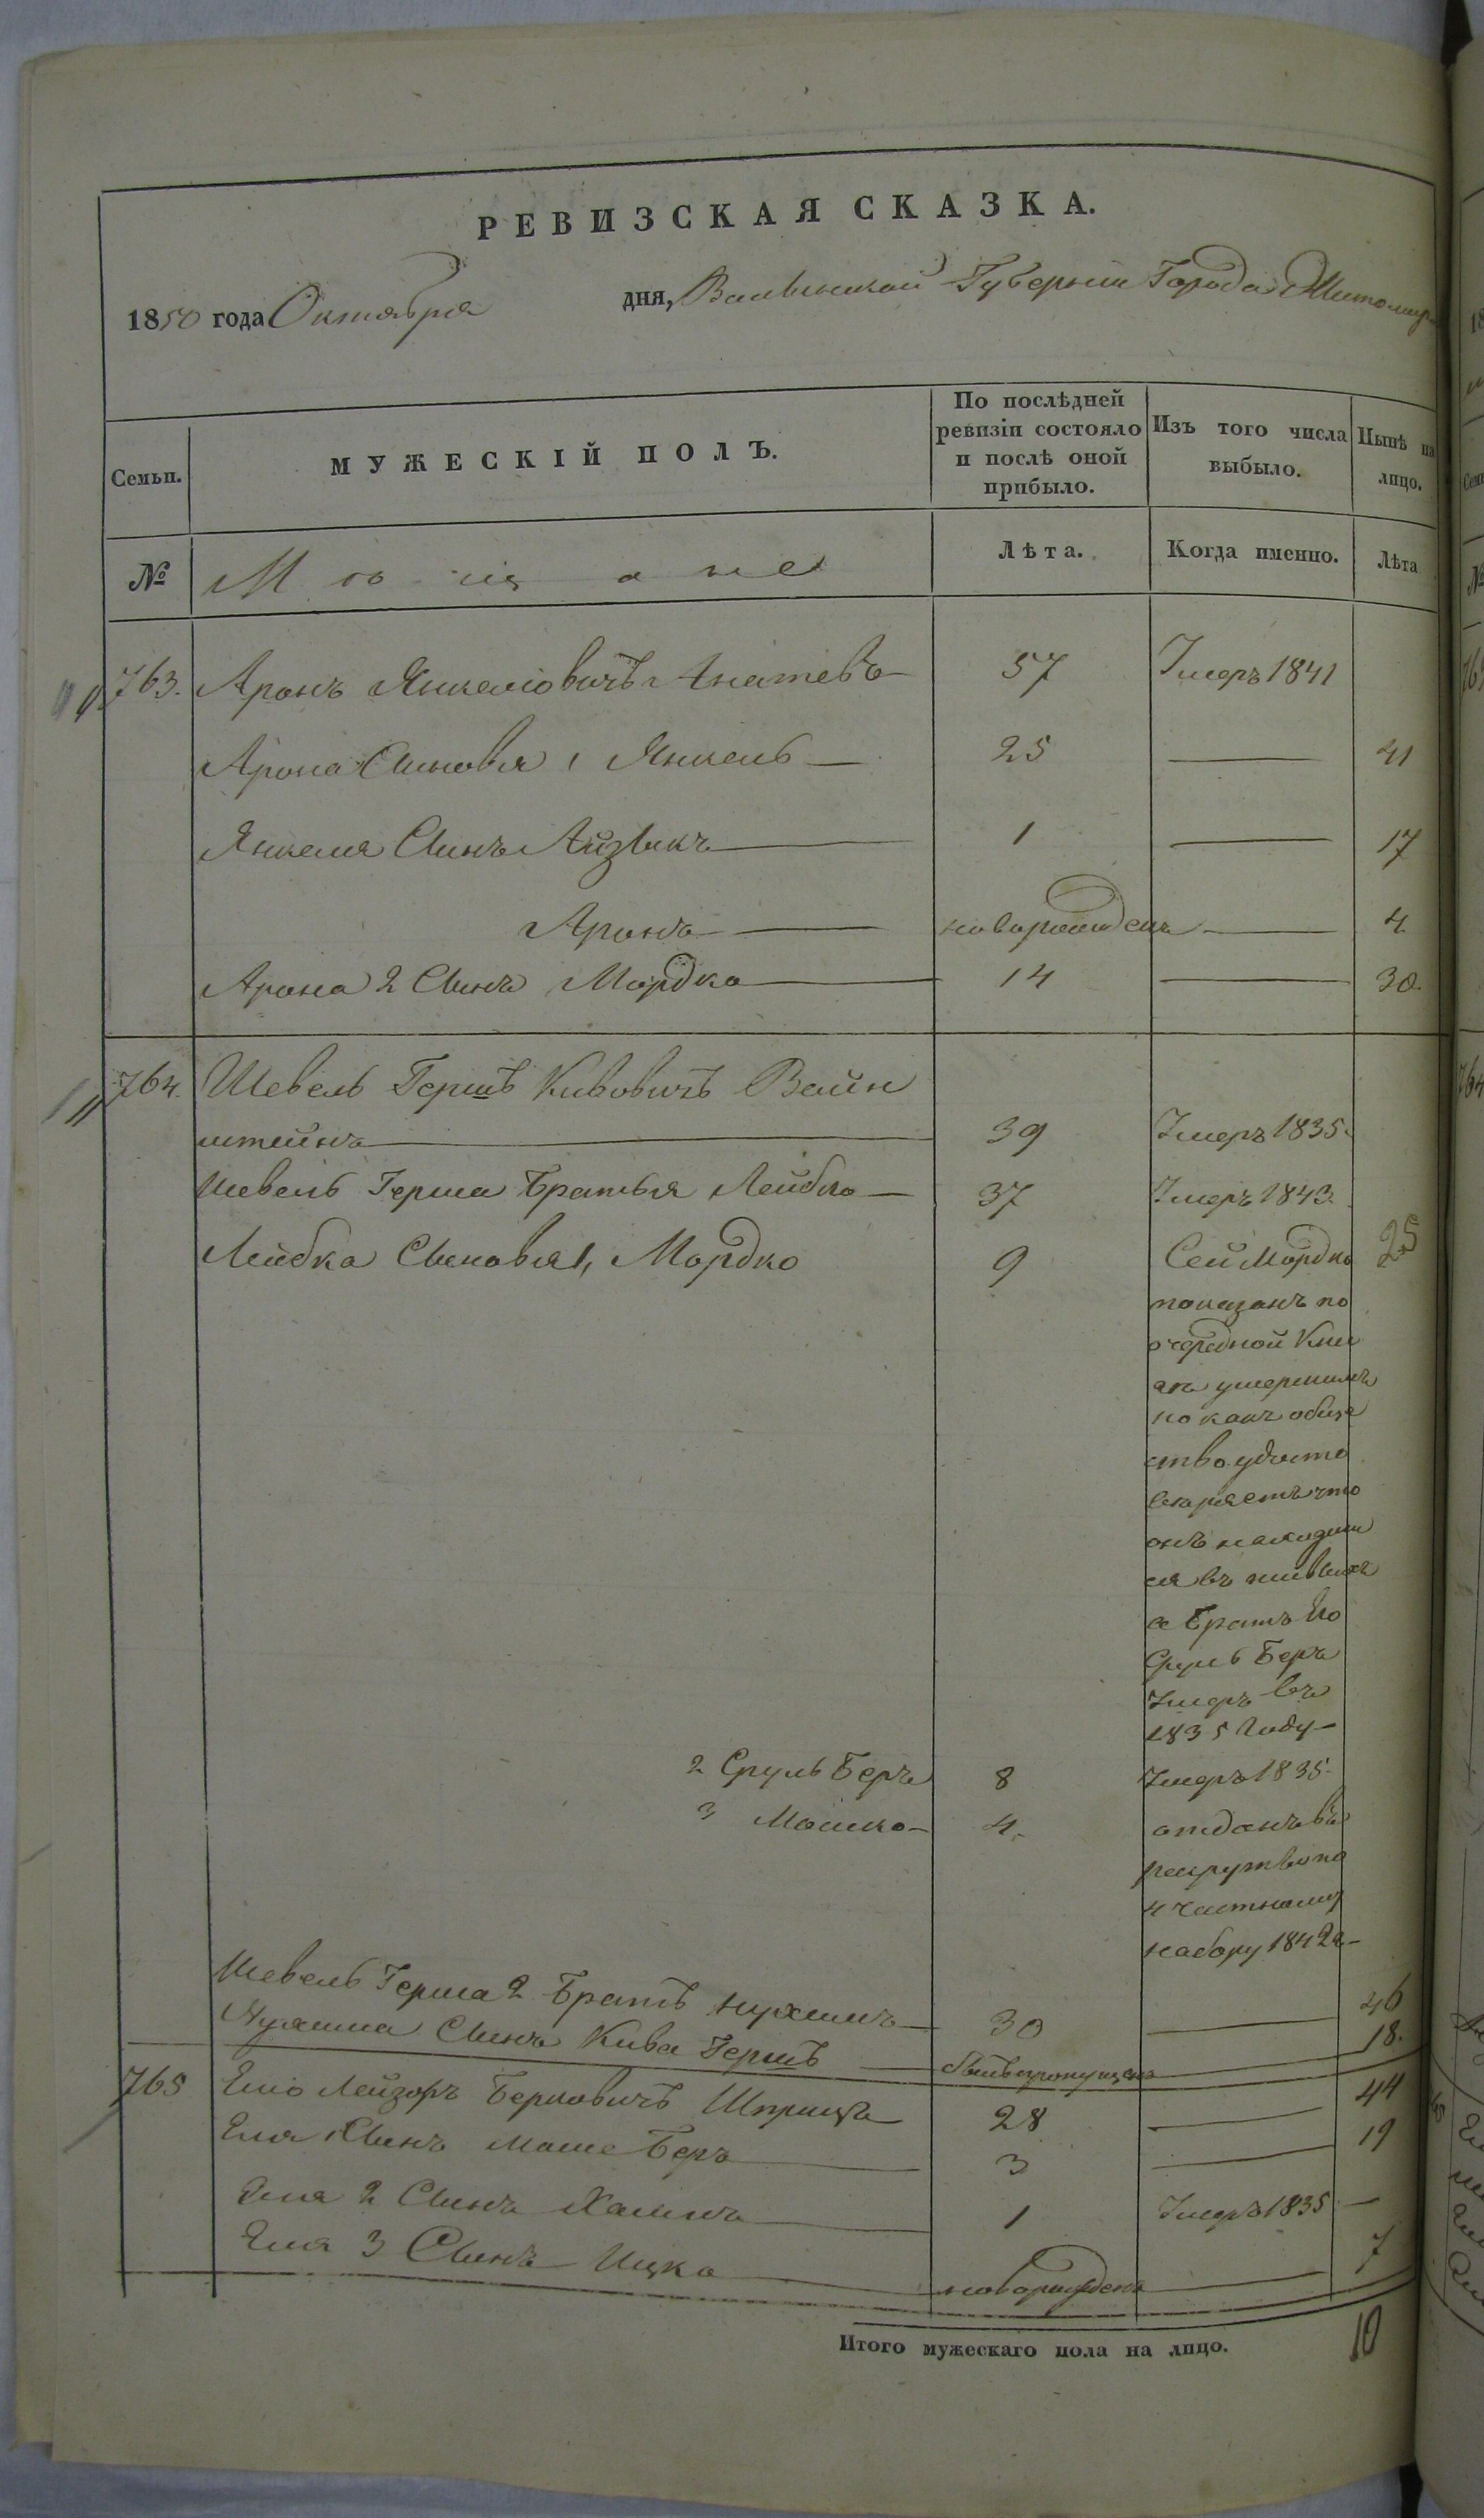 РЕВИЗСКАЯ СКАЗКА.
1850 года Октября дня, Волынской Губернии Города Житомира
Семьи. МУЖЕСКІЙ ПОЛЪ. По послѣдней ревизіи состояло и послѣ оной прибыло. Изъ того числа выбыло. Нынѣ на лицо.
№ Мѣщане Лѣта. Когда именно. Лѣта
763. Аронъ Янкеліовичъ 57 Умеръ 1841
Арона Сыновья 1 Янкель — 25 — 41
Янкеля Сынъ Айзыкъ — 1 — 17
Аронъ — новорожденъ — 4
Арона 2 Сынъ Мордко — 14 — 30.
764. Шевель Гершъ Кивовичъ Вайн
штейнъ — 39 Умеръ 1835.
Шевель Герша Братья Лейбко — 37 Умеръ 1843.
Лейбка Сыновья 1, Мордко 9 Сей Мордко 25
показанъ по
очередной Кни
гѣ умершимъ
но какъ обще
ство удосто
веряетъ что
онъ находит
ся въ живыхъ
а Братъ Его
Сруль Беръ
Умеръ въ
1835 Году —
2 Сруль Беръ 8 Умеръ 1835.
3 Мошко — 4. отданъ въ
рекрутъ по
4 частному
набору 1842 г —
Шевель Герша 2 Братъ Нухимъ — 30 — 46
Нухима Сынъ Кива Гершъ — былъ пропущенъ — 18.
765 Елio Лейзоръ Берковичъ 28 — 44
Еля 1 Сынъ Моше Беръ — 3 — 19
Еля 2 Сынъ Хаимъ — 1 Умеръ 1835 —
Еля 3 Сынъ Ицко — новорожденъ — 7
Итого мужескаго пола на лицо. 10